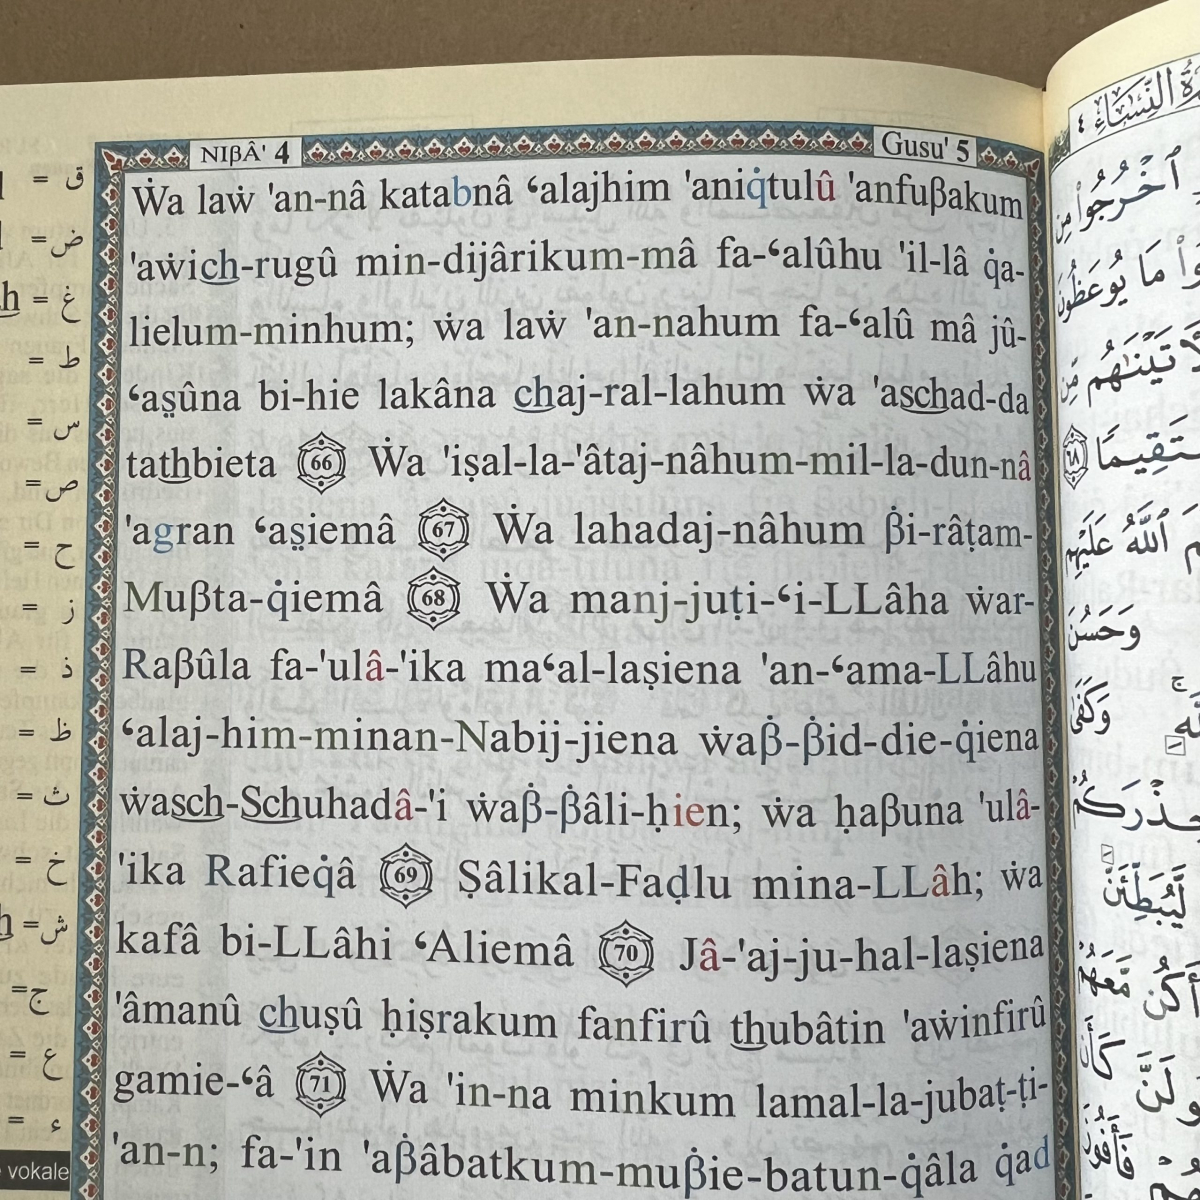 NIβÂ' 4
Gusu' 5
Ẇa laẇ 'an-nâ katabnâ ʿalajhim 'aniq̇tulû 'anfuβakum
'aẇich-rugû min-dijârikum-mâ fa-ʿalûhu 'il-lâ q̇a-
lielum-minhum; ẇa laẇ 'an-nahum fa-ʿalû mâ jû-
ʿaṣ̤ûna bi-hie lakâna chaj-ral-lahum ẇa 'aschad-da
tathbieta 66 Ẇa 'iṣal-la-'âtaj-nâhum-mil-la-dun-nâ
'agran ʿaṣ̤iemâ 67 Ẇa lahadaj-nâhum β̇i-râṭam-
Muβta-q̇iemâ 68 Ẇa manj-juṭi-ʿi-LLâha ẇar-
Raβûla fa-'ulâ-'ika maʿal-laṣiena 'an-ʿama-LLâhu
ʿalaj-him-minan-Nabij-jiena ẇaβ̇-β̇id-die-q̇iena
ẇasch-Schuhadâ-'i ẇaβ̇-β̇âli-ḥien; ẇa ḥaβuna 'ulâ-
'ika Rafieq̇â 69 Ṣâlikal-Faḍlu mina-LLâh; ẇa
kafâ bi-LLâhi ʿAliemâ 70 Jâ-'aj-ju-hal-laṣiena
'âmanû chuṣû ḥiṣrakum fanfirû thubâtin 'aẇinfirû
gamie-ʿâ 71 Ẇa 'in-na minkum lamal-la-jubaṭ-ṭi-
'an-n; fa-'in 'aβ̇âbatkum-muβ̇ie-batun-q̇âla q̇ad
= ق
= ض
h = غ
= ط
= س
= ص
= ح
= ز
= ذ
= ظ
= ث
= خ
h = ش
= ج
= ع
= ء
vokale
النِّسَاءِ ٤
ٱخْرُجُوا۟ مِن
مَا يُوعَظُونَ
لَّءَاتَيْنَٰهُم مِّن
٦٨
ٱللَّهُ عَلَيْهِم
وَحَسُنَ
وَكَفَىٰ
حِذْرَكُمْ
لَّيُبَطِّئَنَّ
أَكُن مَّعَهُمْ
كَأَن لَّمْ
فَأَفُوزَ